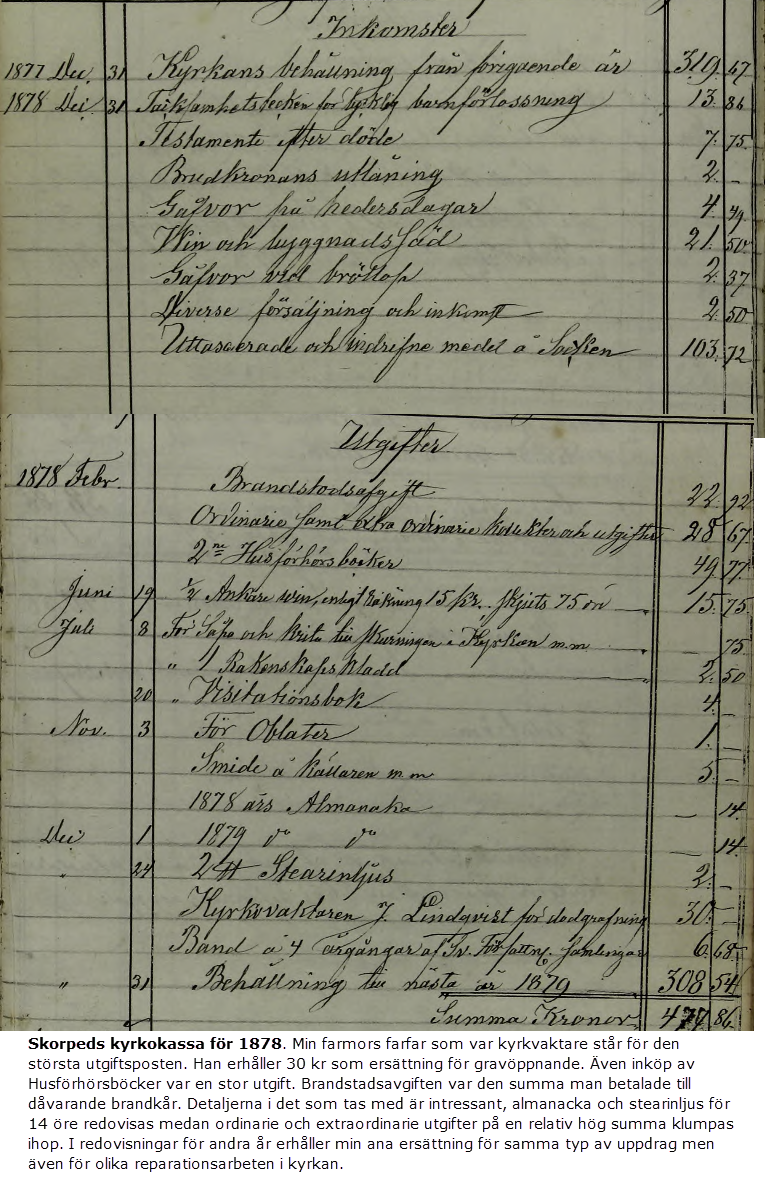 Inkomster
1877 Dec. 31 Kyrkans behållning från föregående år 319. 67
1878 Dec. 31 Tacksamhetstecken för lycklig barnförlossning 13. 86
Testamente efter döde 7. 75.
Brudkronans utlåning 2. –
Gåfvor på hedersdagar 4. 49.
Win och byggnadssäd 21. 50
Gåfvor vid bröllop 2. 37
Diverse försäljning och inkomst 2. 50
Uttaxerade och indrifne medel å Socken 103. 72
Utgifter
1878 Febr. Brandstodsafgift 22. 92
Ordinarie samt extra ordinarie kollekter och utgifter 28 67
2ne Husförhörsböcker 49. 77.
Juni 19 1/2 Ankare win, enligt räkning 15 kr. skjuts 75 öre 15. 75.
Juli 8 För Såpa och krita till skurningen i Kyrkan m.m – 75.
" 1 Räkenskaps kladd 2. 50
20 " Visitationsbok 4. –
Nov. 3 För Oblater 1. –
Smide å källaren m m 5. –
1878 års Almanaka – 14.
Dec 1 1879 do do – 14.
" 24 2 ℔ Stearinljus 2. –
Kyrkovaktaren J. Lindqvist för dödgräfning 30. –
Band å 4 årgångar af Sv. Författn. Samlingar 6. 68.
" 31 Behållning till nästa år 1879 308 54
Summa Kronor 477 86.
Skorpeds kyrkokassa för 1878. Min farmors farfar som var kyrkvaktare står för den
största utgiftsposten. Han erhåller 30 kr som ersättning för gravöppnande. Även inköp av
Husförhörsböcker var en stor utgift. Brandstadsavgiften var den summa man betalade till
dåvarande brandkår. Detaljerna i det som tas med är intressant, almanacka och stearinljus för
14 öre redovisas medan ordinarie och extraordinarie utgifter på en relativ hög summa klumpas
ihop. I redovisningar för andra år erhåller min ana ersättning för samma typ av uppdrag men
även för olika reparationsarbeten i kyrkan.